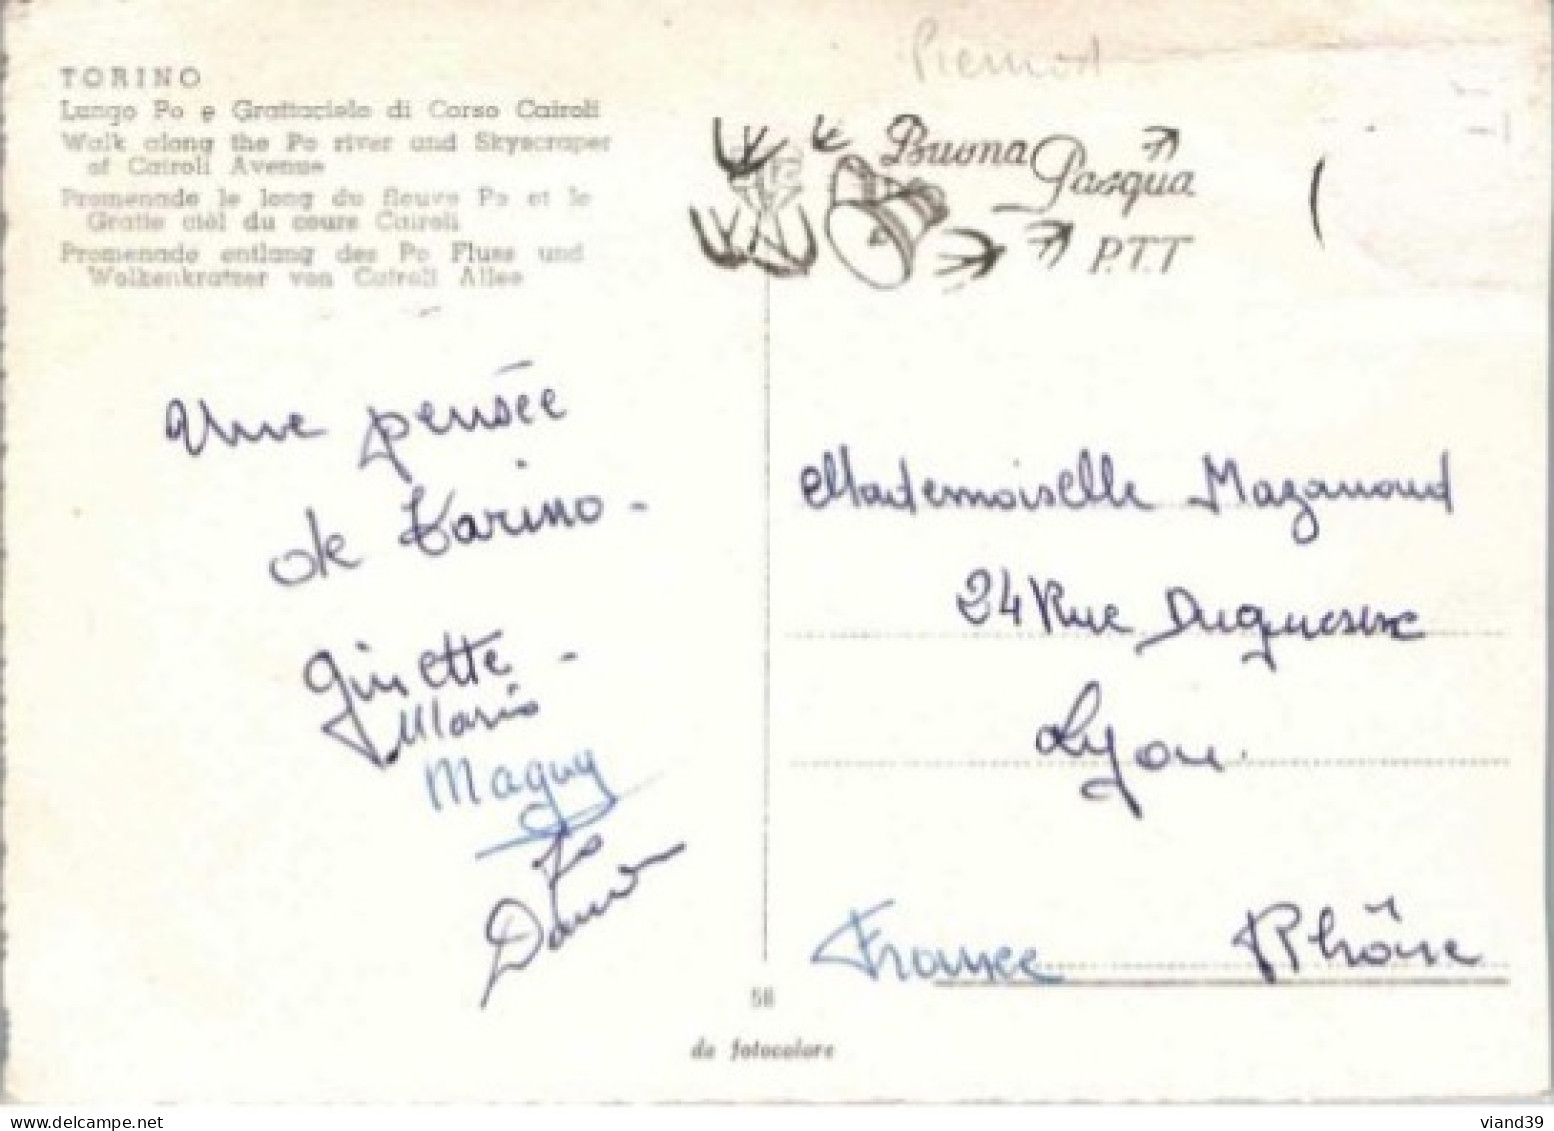 TORINO
Lungo Po e Grattacielo di Corso Cairoli
Walk along the Po river and Skyscraper
of Cairoli Avenue
Promenade le long du fleuve Po et le
Gratte ciél du cours Cairoli
Promenade entlang des Po Fluss und
Wolkenkratzer von Cairoli Allee
Piemont
Buona
Pasqua
P.T.T
Une pensée
de Torino -
Ginette -
Mario
Maguy
Jo
Mademoiselle Mazanoud
24 Rue Duquesne
Lyon.
France Rhône
58
da fotocolore
viand39